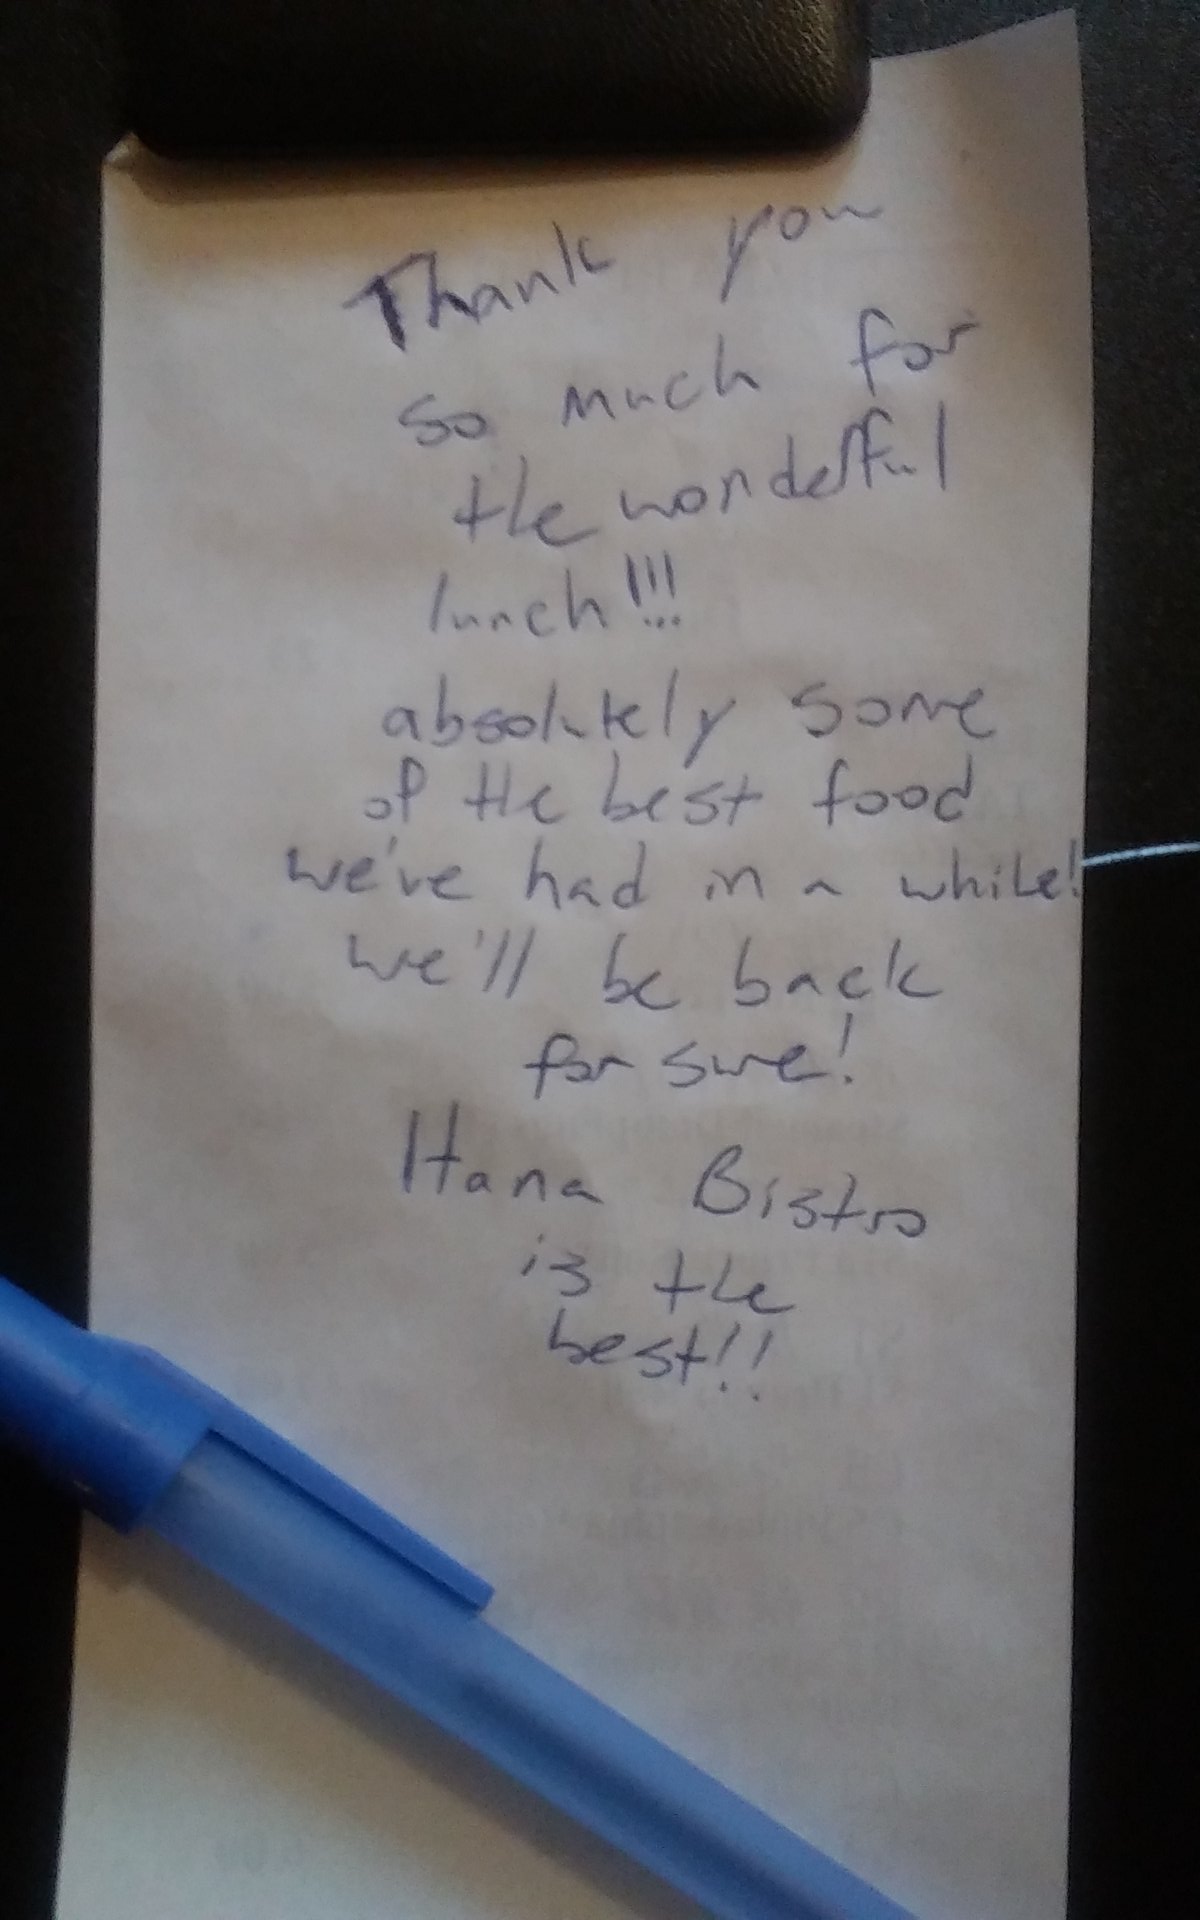 Thank you
so much for
the wonderful
lunch!!!
absolutely some
of the best food
we've had in a while!
we'll be back
for sure!
Hana Bistro
is the
best!!